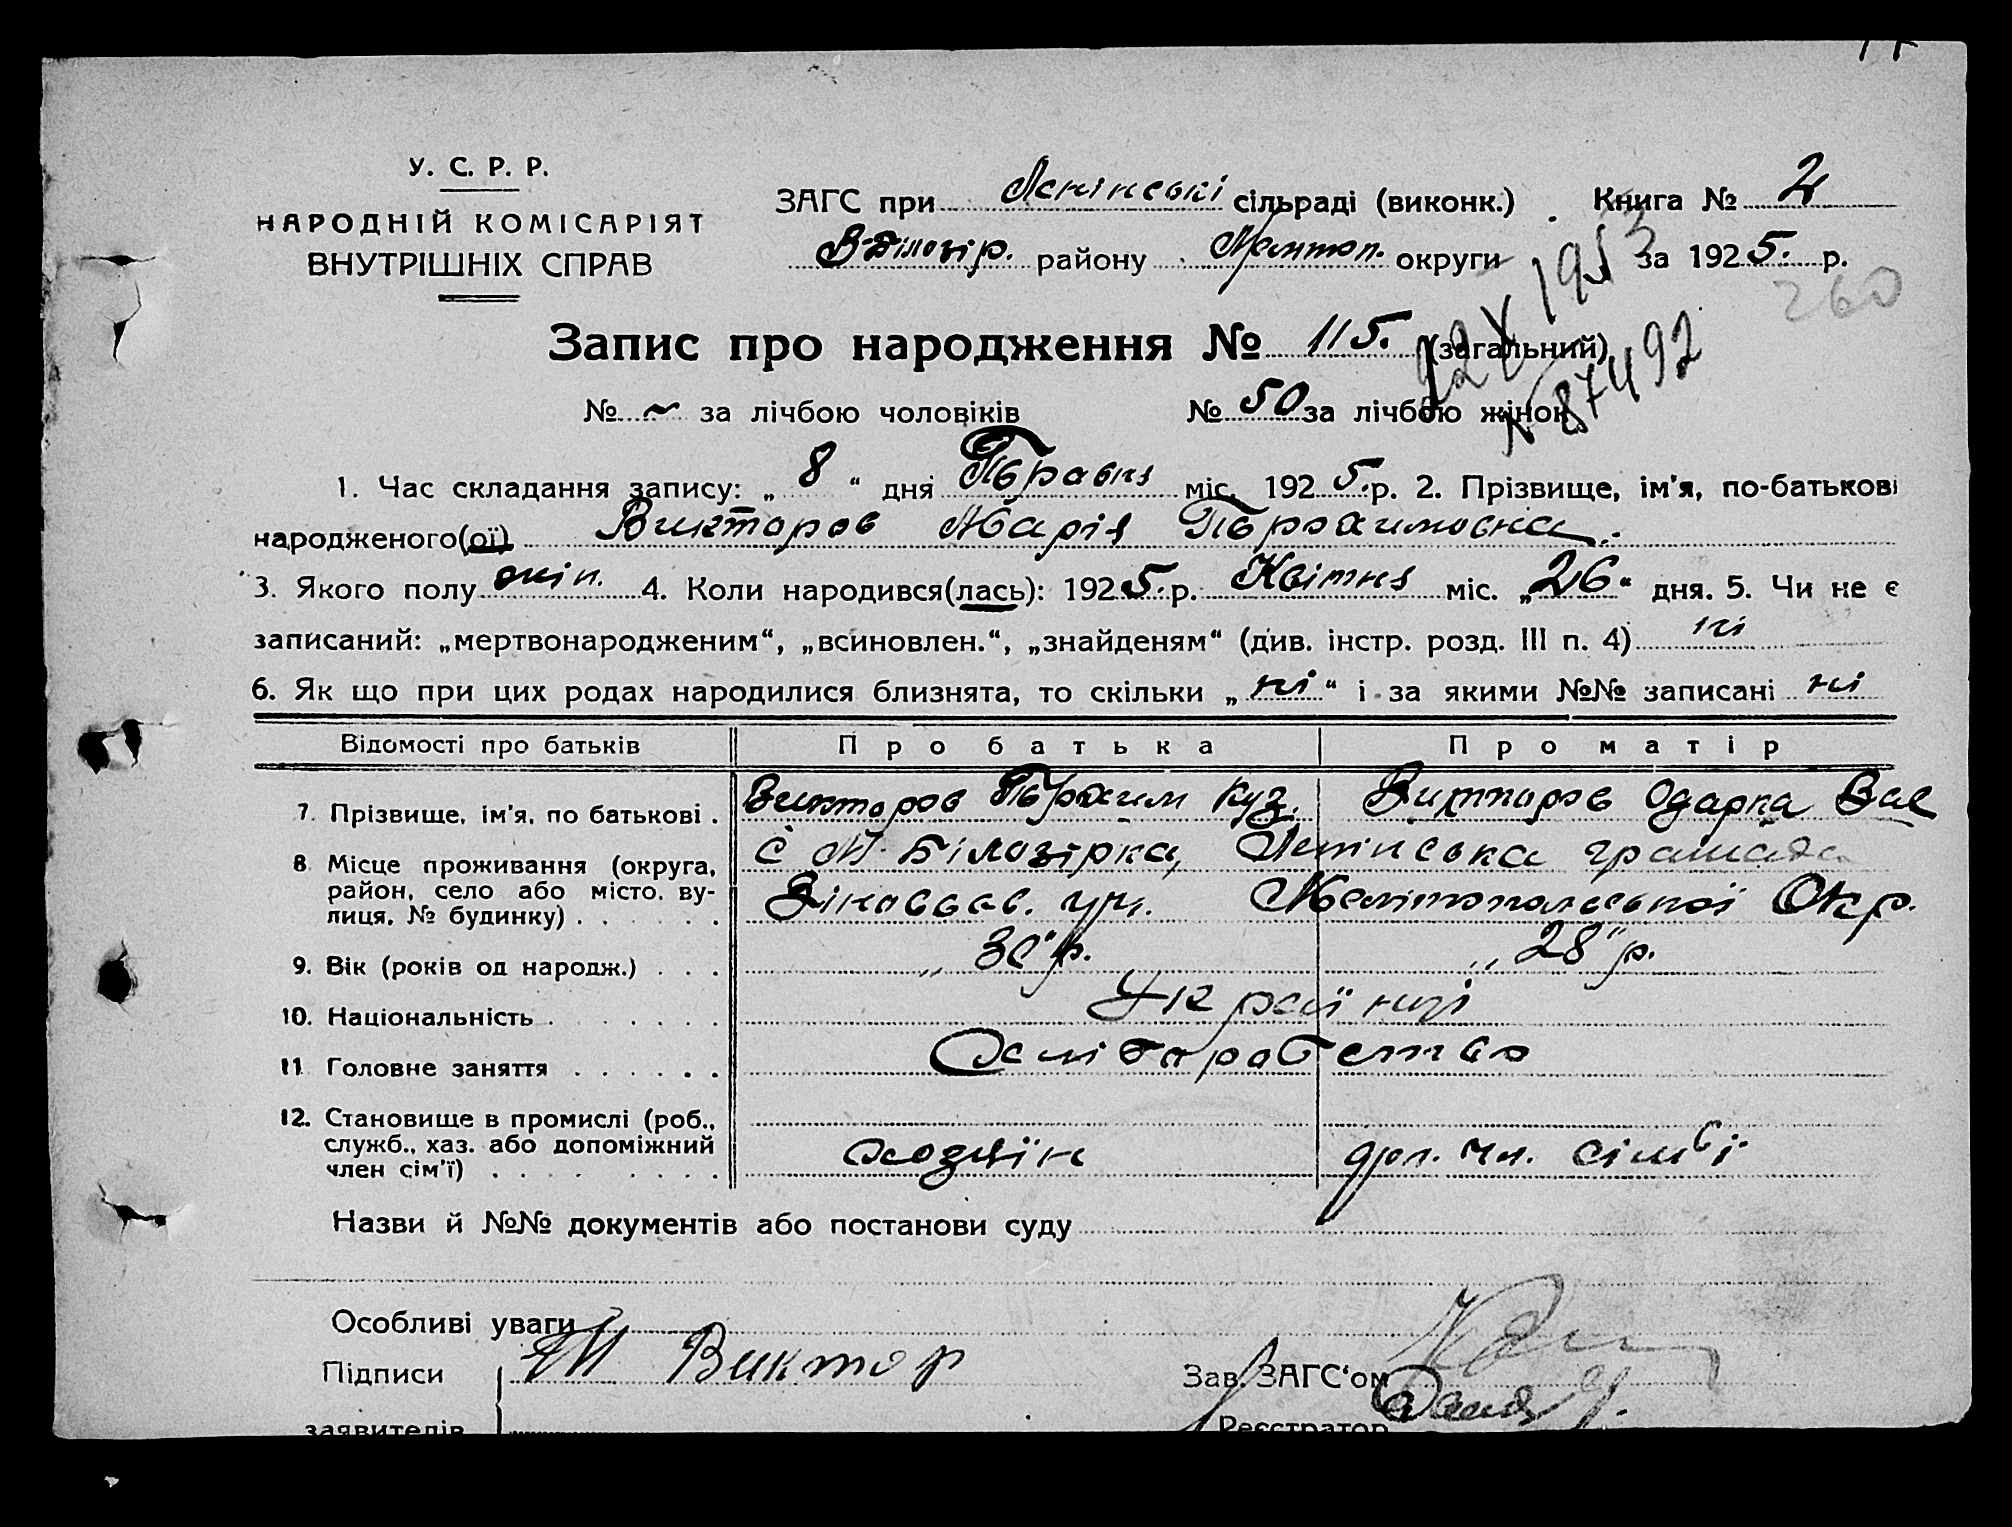 У. С. Р. Р.
НАРОДНІЙ КОМІСАРІЯТ
ВНУТРІШНІХ СПРАВ
ЗАГС при Ленінські сільраді (виконк.) Книга № 2
В-Білозір. району Мелітоп. округи за 1925. р.
22 X 1953
260
Запис про народження № 115. (загальний)
№ 87492
№ ~ за лічбою чоловіків № 50 за лічбою жінок
1. Час складання запису: „ 8 “ дня Травня міс. 1925. р. 2. Прізвище, ім'я, по-батькові
народженого(ої) Викторов Марія Трохимовна
3. Якого полу жін. 4. Коли народився(лась): 1925. р. Квітня міс. „26“ дня. 5. Чи не є
записаний: „мертвонародженим“, „всиновлен.“, „знайденям“ (див. інстр. розд. III п. 4) ні
6. Як що при цих родах народилися близнята, то скільки „ні“ і за якими №№ записані ні
Відомості про батьків Про батька Про матір
7. Прізвище, ім'я, по батькові . Викторов Трохим Куз. Викторов Одарка Вас
8. Місце проживання (округа, район, село або місто, вулиця, № будинку) . с М. Білозірка, Ленінська громада
Мелітопольської Окр.
9. Вік (років од народж.) . . . „30“ р. „28“ р.
10. Національність . Українці
11. Головне заняття . Хліборобство
12. Становище в промислі (роб.,
служб., хаз. або допоміжний
член сім'ї) . хозяїн доп. чл. сімї
Назви й №№ документів або постанови суду
Особливі уваги
Підписи Т Виктор Зав. ЗАГС'ом
заявителів Реєстратор